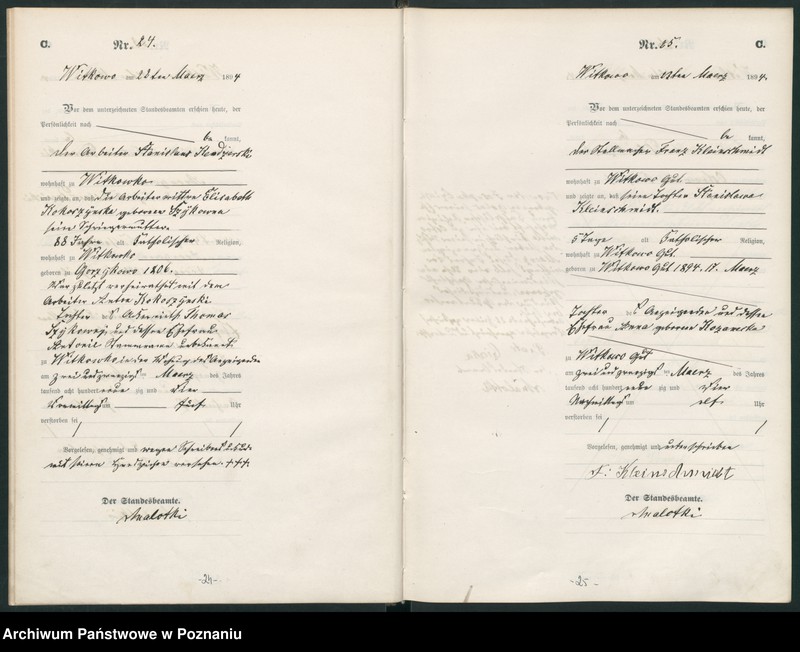 C.
Nr. 24.
Witkowo am 22ten Maerz 1894
Vor dem unterzeichneten Standesbeamten erschien heute, der
Persönlichkeit nach
be kannt,
der Arbeiter Stanislaus
wohnhaft zu Witkowko
und zeigte an, daß die Arbeiterwittwe Elisabeth
Kokoszynska geborene
seine Schwiegermutter
88 Jahre alt katholischer Religion,
wohnhaft zu Witkowko
geboren zu 1806.
War zuletzt verheirathet mit dem
Arbeiter Kokoszynski
Tochter des Ackerwirth Thomas
und dessen Ehefrau
Antonie
zu Witkowko, in der Wohnung des Anzeigenden
am zwei und zwanzigsten Maerz des Jahres
tausend acht hundert neun zig und vier
Vormittags um fünf Uhr
verstorben sei
Vorgelesen, genehmigt und wegen
mit seinem Handzeichen versehen. +++
Der Standesbeamte.
-24-
Nr. 25.
C.
Witkowo am 22ten Maerz 1894.
Vor dem unterzeichneten Standesbeamten erschien heute, der
Persönlichkeit nach
be kannt,
der Stellmacher Franz Kleinschmidt
wohnhaft zu Witkowo Gut
und zeigte an, daß seine Tochter Stanislawa
Kleinschmidt.
5 Tage alt katholischer Religion,
wohnhaft zu Witkowo Gut.
geboren zu Witkowo Gut 1894. 17. Maerz
Tochter des Anzeigenden und dessen
Ehefrau Anna geborene
zu Witkowo Gut
am zwei und zwanzigsten Maerz des Jahres
tausend acht hundert neun zig und vier
Nachmittags um elf Uhr
verstorben sei
Vorgelesen, genehmigt und unterschrieben
F: Kleinschmidt
Der Standesbeamte.
-25-
Archiwum Państwowe w Poznaniu